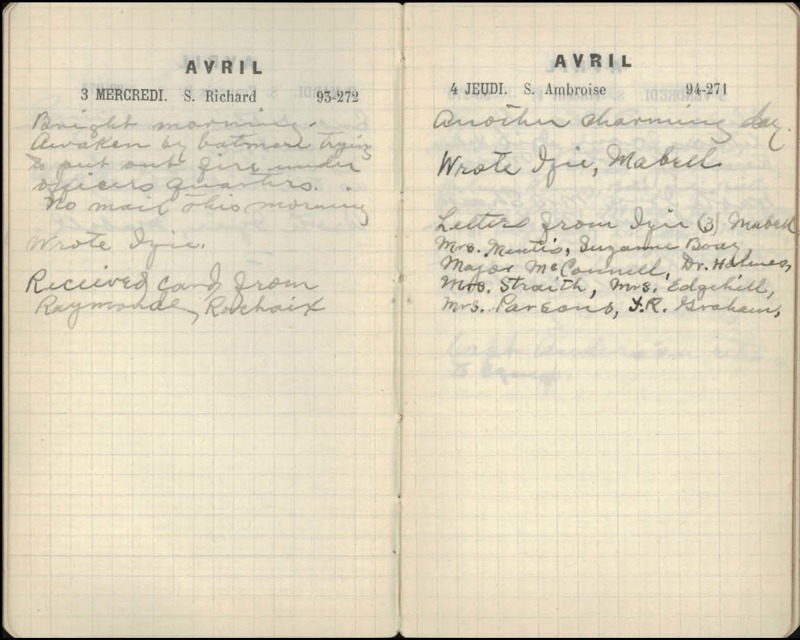 AVRIL
3 MERCREDI. S. Richard 93-272
Bright morning.
Awaken by batmen trying
to put out fire under
officers quarters.
No mail this morning
Wrote Izie.
Received card from
Raymonde Rochaix
AVRIL
4 JEUDI. S. Ambroise 94-271
Another charming day.
Wrote Izie, Mabell
Letters from Izie (3) Mabell
Mrs. Mentis, Suzanne Boay,
Major McConnell, Dr. Holmes,
Mrs. Straith, Mrs. Edgehill,
Mrs. Parsons, F.R. Graham,